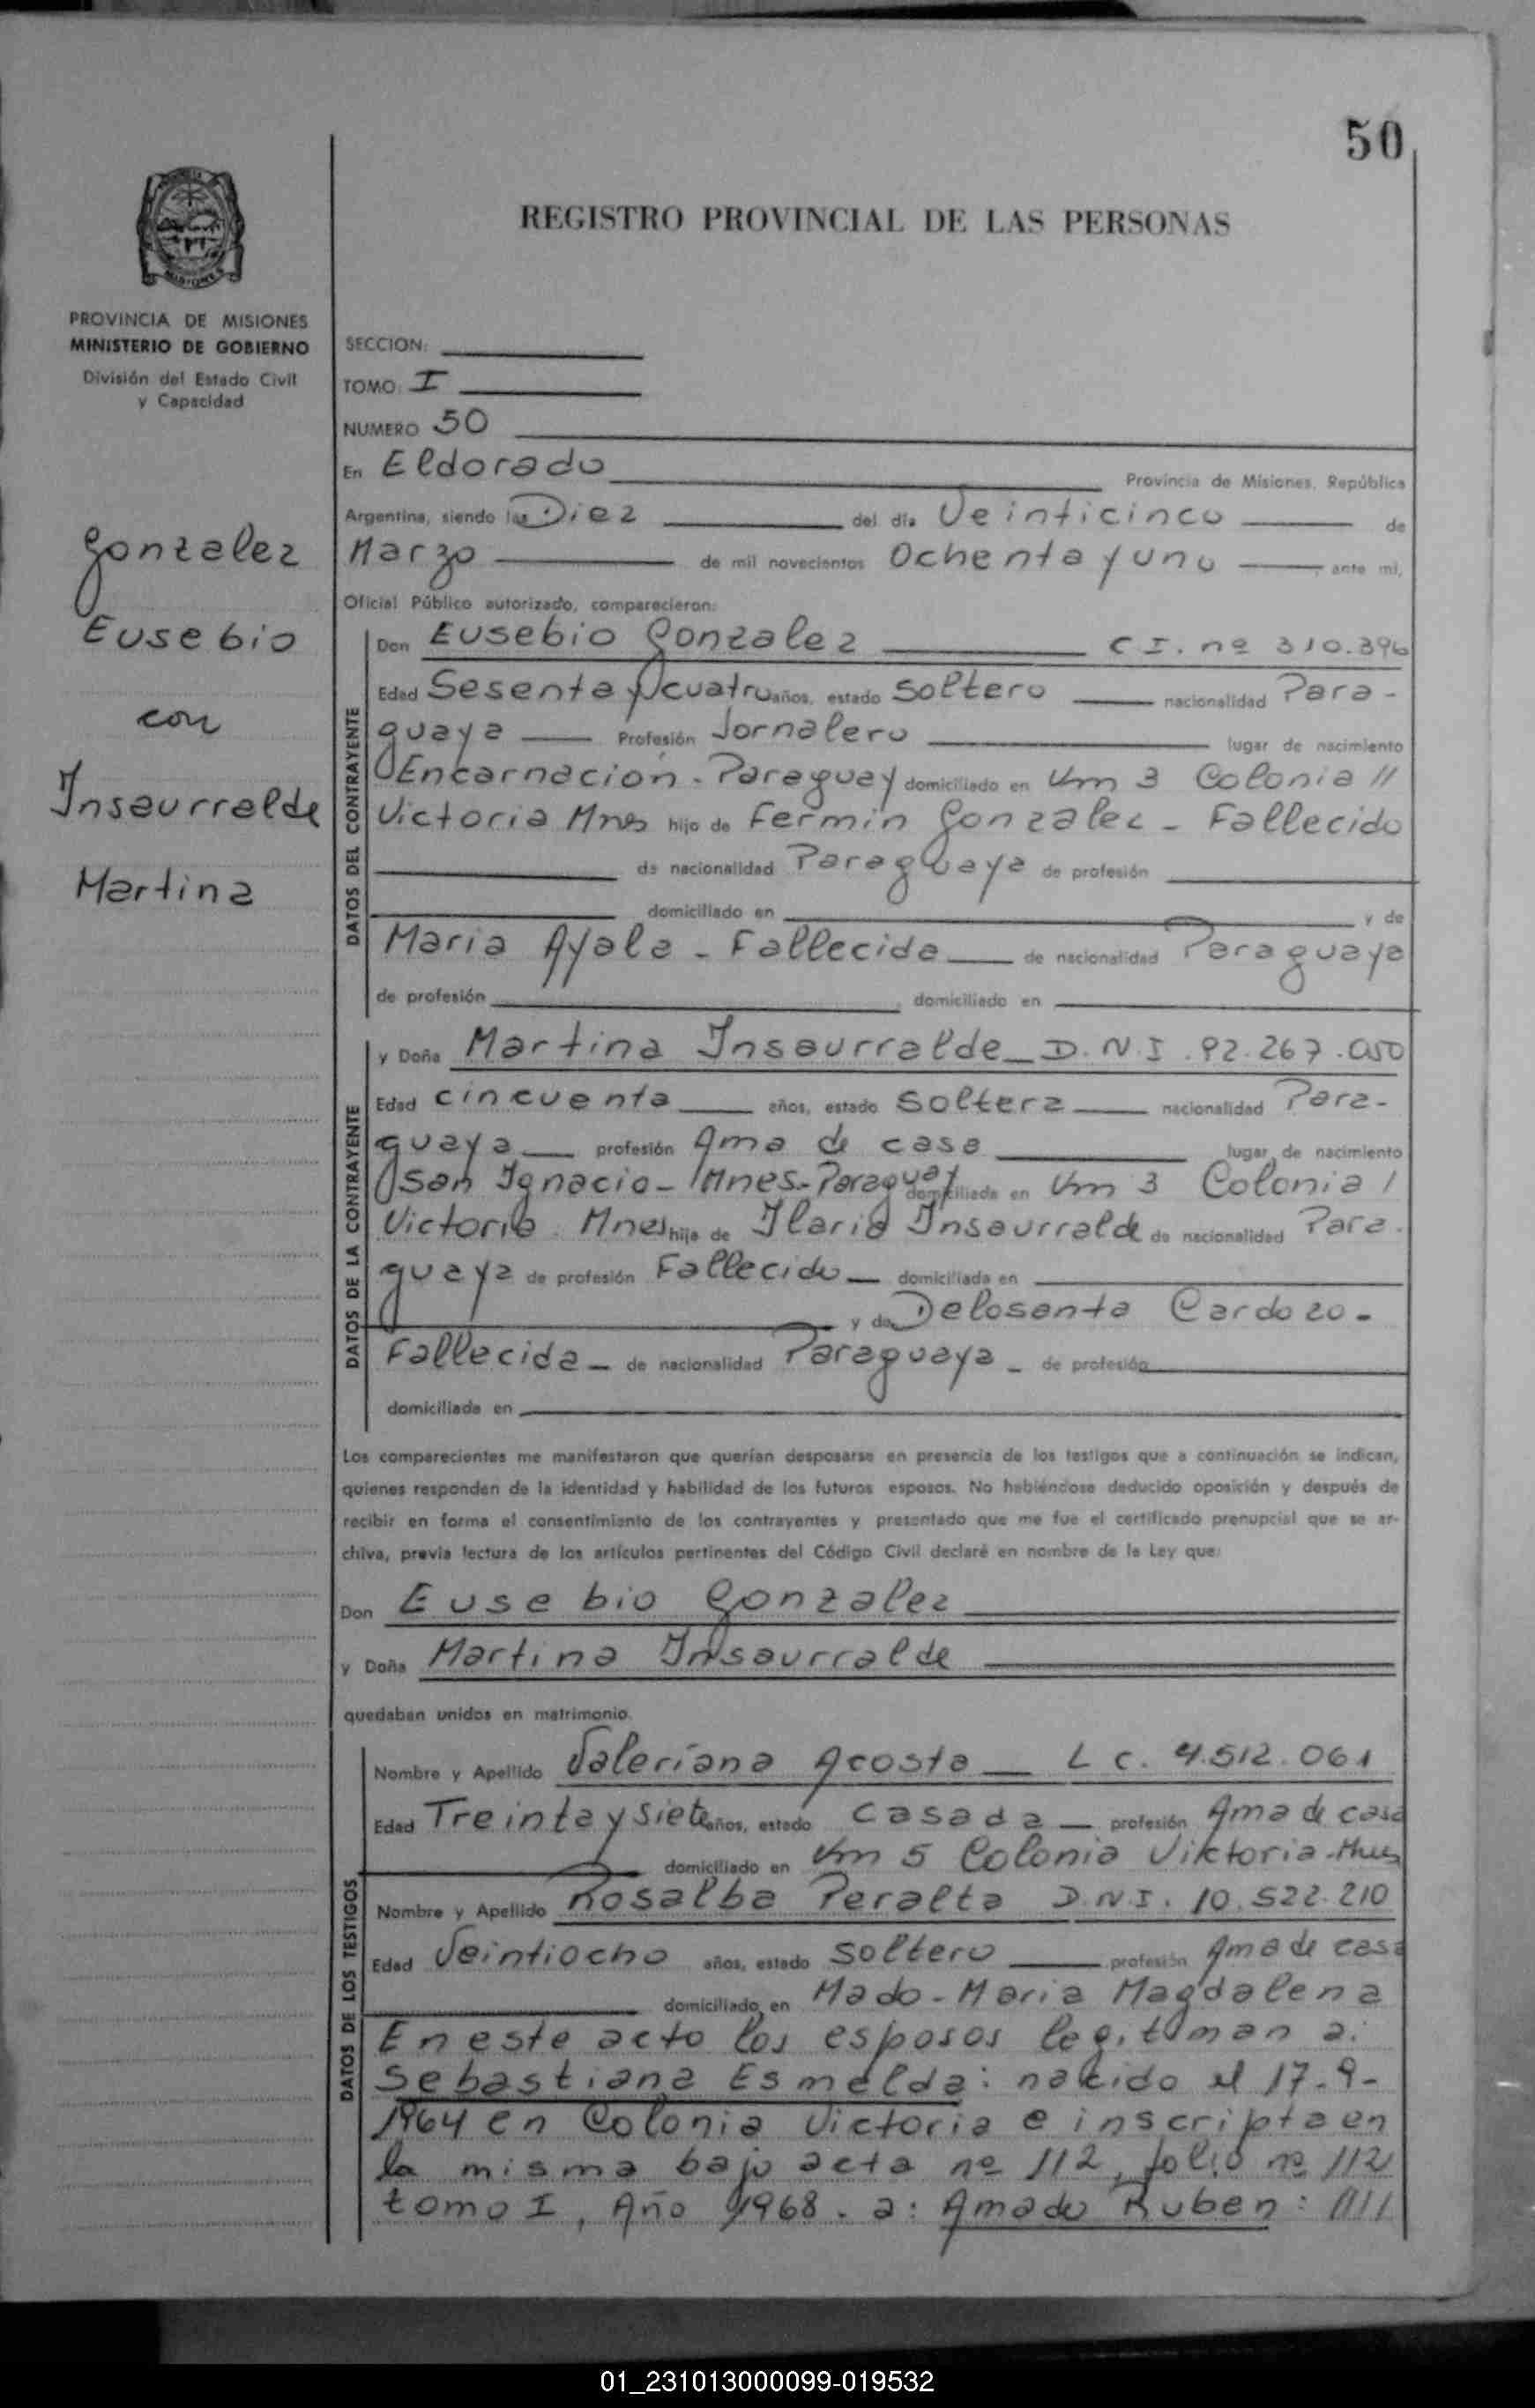 50
REGISTRO PROVINCIAL DE LAS PERSONAS
MISIONES
PROVINCIA DE MISIONES
MINISTERIO DE GOBIERNO
División del Estado Civil
y Capacidad
Gonzalez
Eusebio
con
Insaurralde
Martina
SECCION:
TOMO: I
NUMERO 50
En Eldorado Provincia de Misiones, República
Argentina, siendo las Diez del día Veinticinco de
Marzo de mil novecientos Ochenta y uno ante mí,
Oficial Público autorizado, comparecieron:
DATOS DEL CONTRAYENTE
Don Eusebio Gonzalez C I. nº 310.396
Edad Sesenta y cuatro años, estado Soltero nacionalidad Para-
guaya Profesión Jornalero lugar de nacimiento
Encarnación - Paraguay domiciliado en Km 3 Colonia //
Victoria Mnes hijo de Fermin Gonzalez - Fallecido
de nacionalidad Paraguaya de profesión
domiciliado en y de
Maria Ayala - Fallecida de nacionalidad Paraguaya
de profesión , domiciliado en
DATOS DE LA CONTRAYENTE
y Doña Martina Insaurralde - D.N.I. 92.267.050
Edad cincuenta años, estado Soltera nacionalidad Para-
guaya profesión Ama de casa lugar de nacimiento
San Ignacio - Mnes - Paraguay domiciliada en Km 3 Colonia /
Victoria. Mnes hija de Ilario Insaurralde de nacionalidad Para.
guaya de profesión Fallecido - domiciliada en
y de Delosanta Cardozo -
Fallecida - de nacionalidad Paraguaya - de profesión
domiciliada en
Los comparecientes me manifestaron que querían desposarse en presencia de los testigos que a continuación se indican,
quienes responden de la identidad y habilidad de los futuros esposos. No habiéndose deducido oposición y después de
recibir en forma el consentimiento de los contrayentes y presentado que me fue el certificado prenupcial que se ar-
chiva, previa lectura de los artículos pertinentes del Código Civil declaré en nombre de la Ley que:
Don Eusebio Gonzalez
y Doña Martina Insaurralde
quedaban unidos en matrimonio.
DATOS DE LOS TESTIGOS
Nombre y Apellido Valeriana Acosta - L C. 4.512.061
Edad Treinta y Siete años, estado Casada - profesión Ama de casa
domiciliado en Km 5 Colonia Viktoria - Mnes
Nombre y Apellido Rosalba Peralta D.N.I. 10.522.210
Edad Veintiocho años, estado Soltero profesión Ama de casa
domiciliado en Mado - Maria Magdalena
En este acto los esposos legitiman a:
Sebastiana Esmelda: nacido el 17-9-
1964 en Colonia Victoria e inscripta en
la misma bajo acta nº 112, folio nº 112
tomo I, Año 1968. a: Amado Ruben: ////
01_231013000099-019532